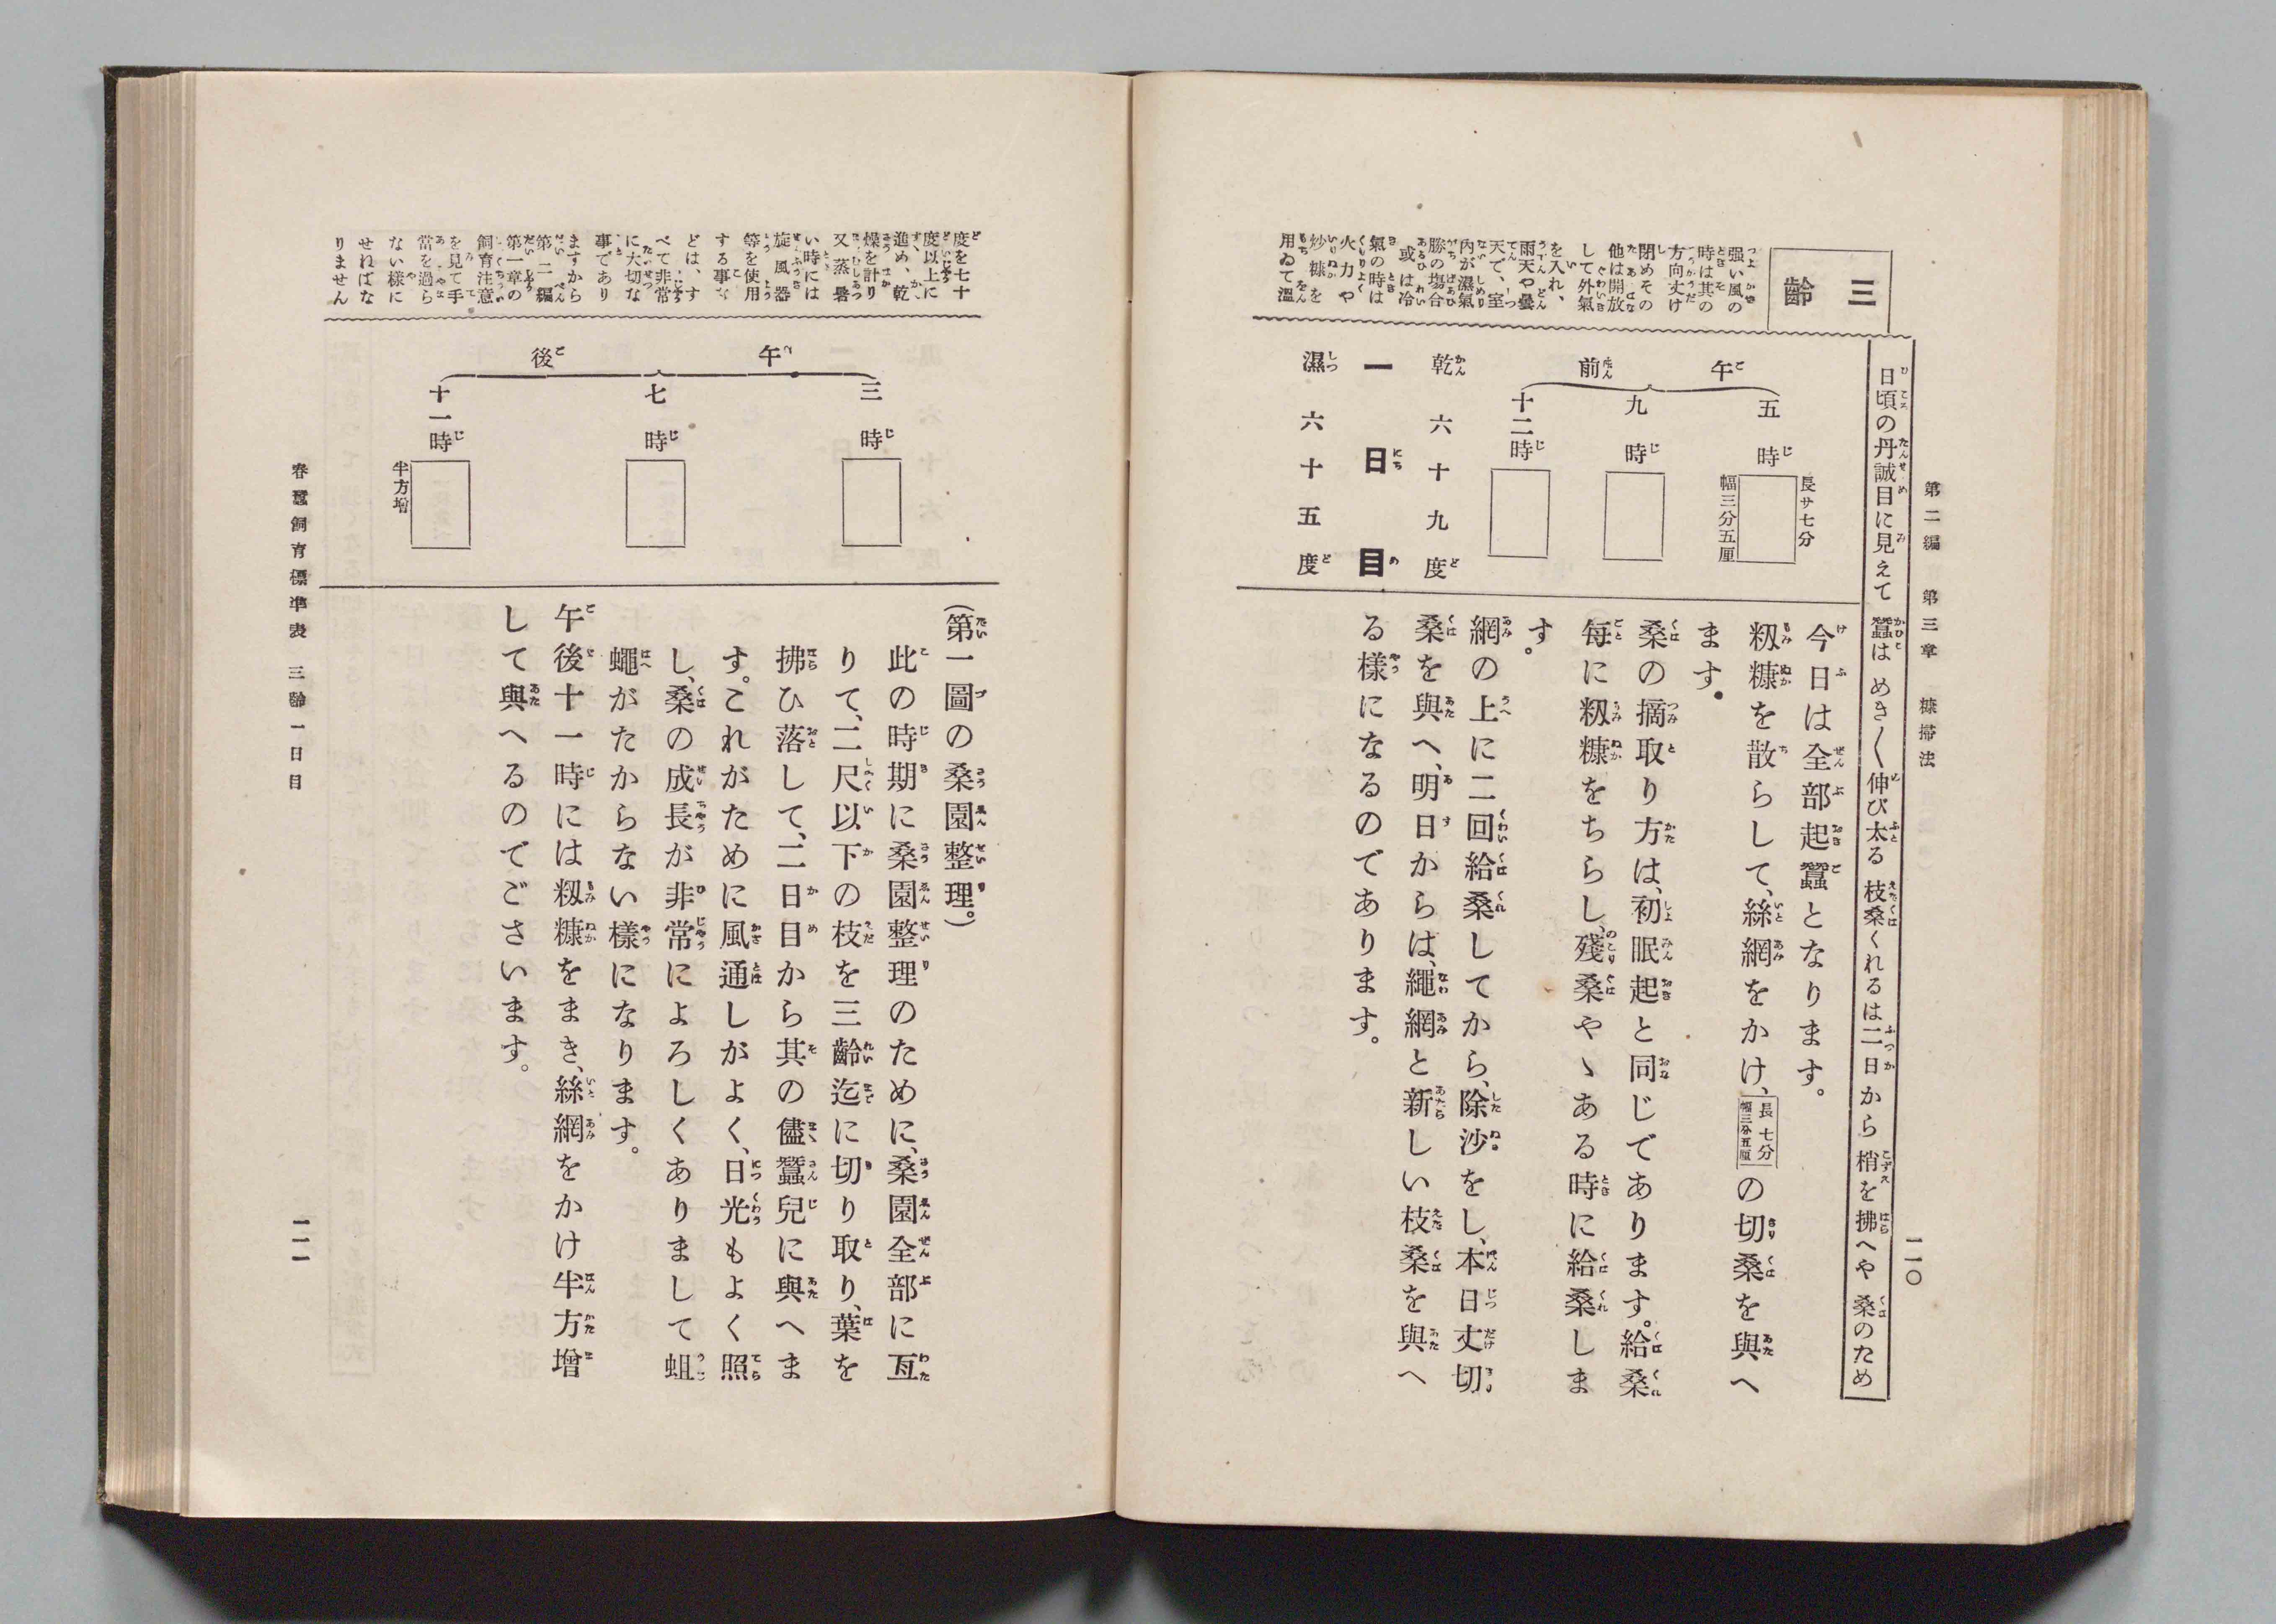 第二編　第三章　糠掃法
二〇
三齡
日頃の丹誠目に見えて　蠶は　めき〱伸び太る　枝桑くれるは二日から　梢を拂へや　桑のため
强い風の
時は其の
方向丈け
閉めその
他は開放
して外氣
を入れ、
雨天や曇
天で、室
內が濕氣
勝の塲合
或は冷
氣の時は
火力や
炒糠を
用ゐて溫
午前
五時
長サ七分
幅三分五厘
九時
十二時
乾　六十九度
一日目
濕　六十五度
今日は全部起蠶となります。
籾糠を散らして、絲網をかけ、長七分幅三分五厘の切桑を與へ
ます。
桑の摘取り方は、初眠起と同じであります。給桑
每に籾糠をちらし、殘桑やゝある時に給桑しま
す。
網の上に二回給桑してから、除沙をし、本日丈切
桑を與へ、明日からは、繩網と新しい枝桑を與へ
る樣になるのであります。
度を七十
度以上に
進め、乾
燥を計り
又蒸暑
い時には
旋風器
等を使用
する事な
どは、す
べて非常
に大切な
事であり
ますから
第二編
第一章の
飼育注意
を見て手
當を過ら
ない樣に
せればな
りません
午後
三時
七時
十一時
半方增
(第一圖の桑園整理。)
此の時期に桑園整理のために、桑園全部に亙
りて、二尺以下の枝を三齡迄に切り取り、葉を
拂ひ落して、二日目から其の儘蠶兒に與へま
す。これがために風通しがよく、日光もよく照
し、桑の成長が非常によろしくありまして蛆
蠅がたからない樣になります。
午後十一時には籾糠をまき、絲網をかけ半方增
して與へるのでございます。
春蠶飼育標準表　三齡一日目
二一